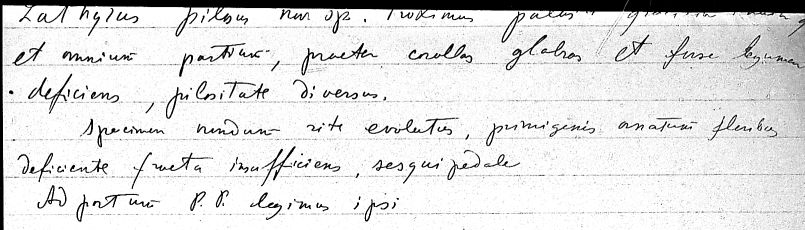 Lathyrus pilosus nov. sp. Proximus palustri
et omnium partium, praeter corollas glabras et forse legumen
deficiens, pilositate diversus.
Specimen nondum rite evolutus, primigenis ornatum floribus
deficiente fructu insufficiens, sesquipedale
Ad portum P. P. legimus ipsi